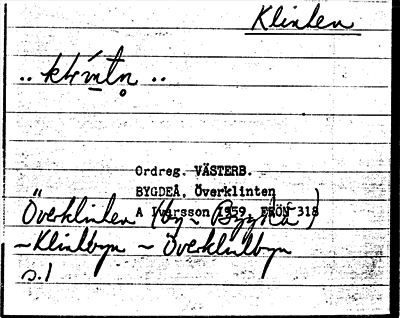 Klinten
.. klíntn̥ ..
Ordreg. VÄSTERB.
BYGDEÅ, Överklinten
A Ivarsson 1959 ERÖN 318
Överklinten (by ~ Bygdeå)
~ Klintbyn ~ Överklintbyn
s. 1